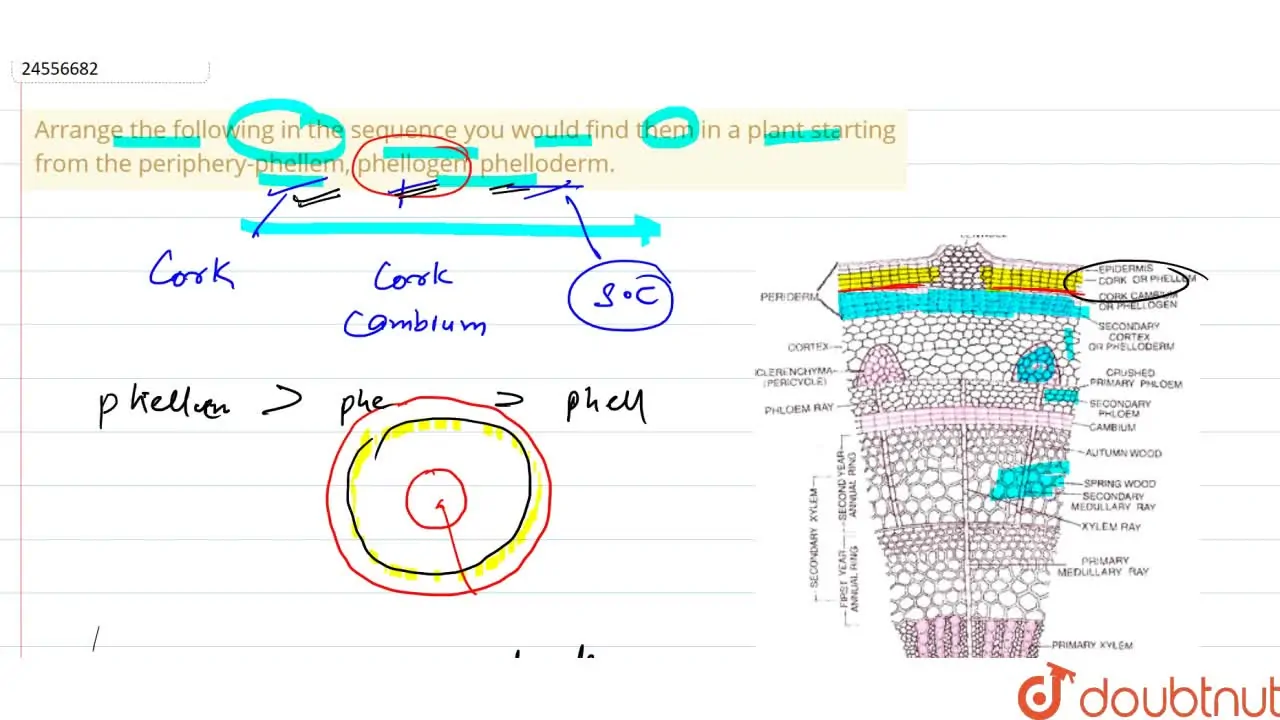 24556682
Arrange the following in the sequence you would find them in a plant starting
from the periphery-phellem, phellogen, phelloderm.
Cork
Cork
Cambium
S.C
phellem > phe > phell
LENTICEL
PERIDERM
EPIDERMIS
CORK OR PHELLEM
CORK CAMBIUM
OR PHELLOGEN
SECONDARY
CORTEX
OR PHELLODERM
CORTEX
CLERENCHYMA
(PERICYCLE)
CRUSHED
PRIMARY PHLOEM
PHLOEM RAY
SECONDARY
PHLOEM
CAMBIUM
AUTUMN WOOD
SPRING WOOD
SECONDARY
MEDULLARY RAY
XYLEM RAY
SECONDARY XYLEM
SECOND YEAR
ANNUAL RING
FIRST YEAR
ANNUAL RING
PRIMARY
MEDULLARY RAY
PRIMARY XYLEM
doubtnut